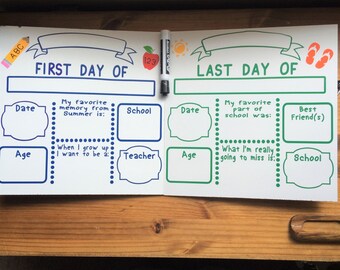 ABC
123
FIRST DAY OF
Date
My favorite
memory from
Summer is:
School
Age
When I grow up
I want to be a:
Teacher
LAST DAY OF
Date
My favorite
part of
school was:
Best
Friend(s)
Age
What I'm really
going to miss is:
School